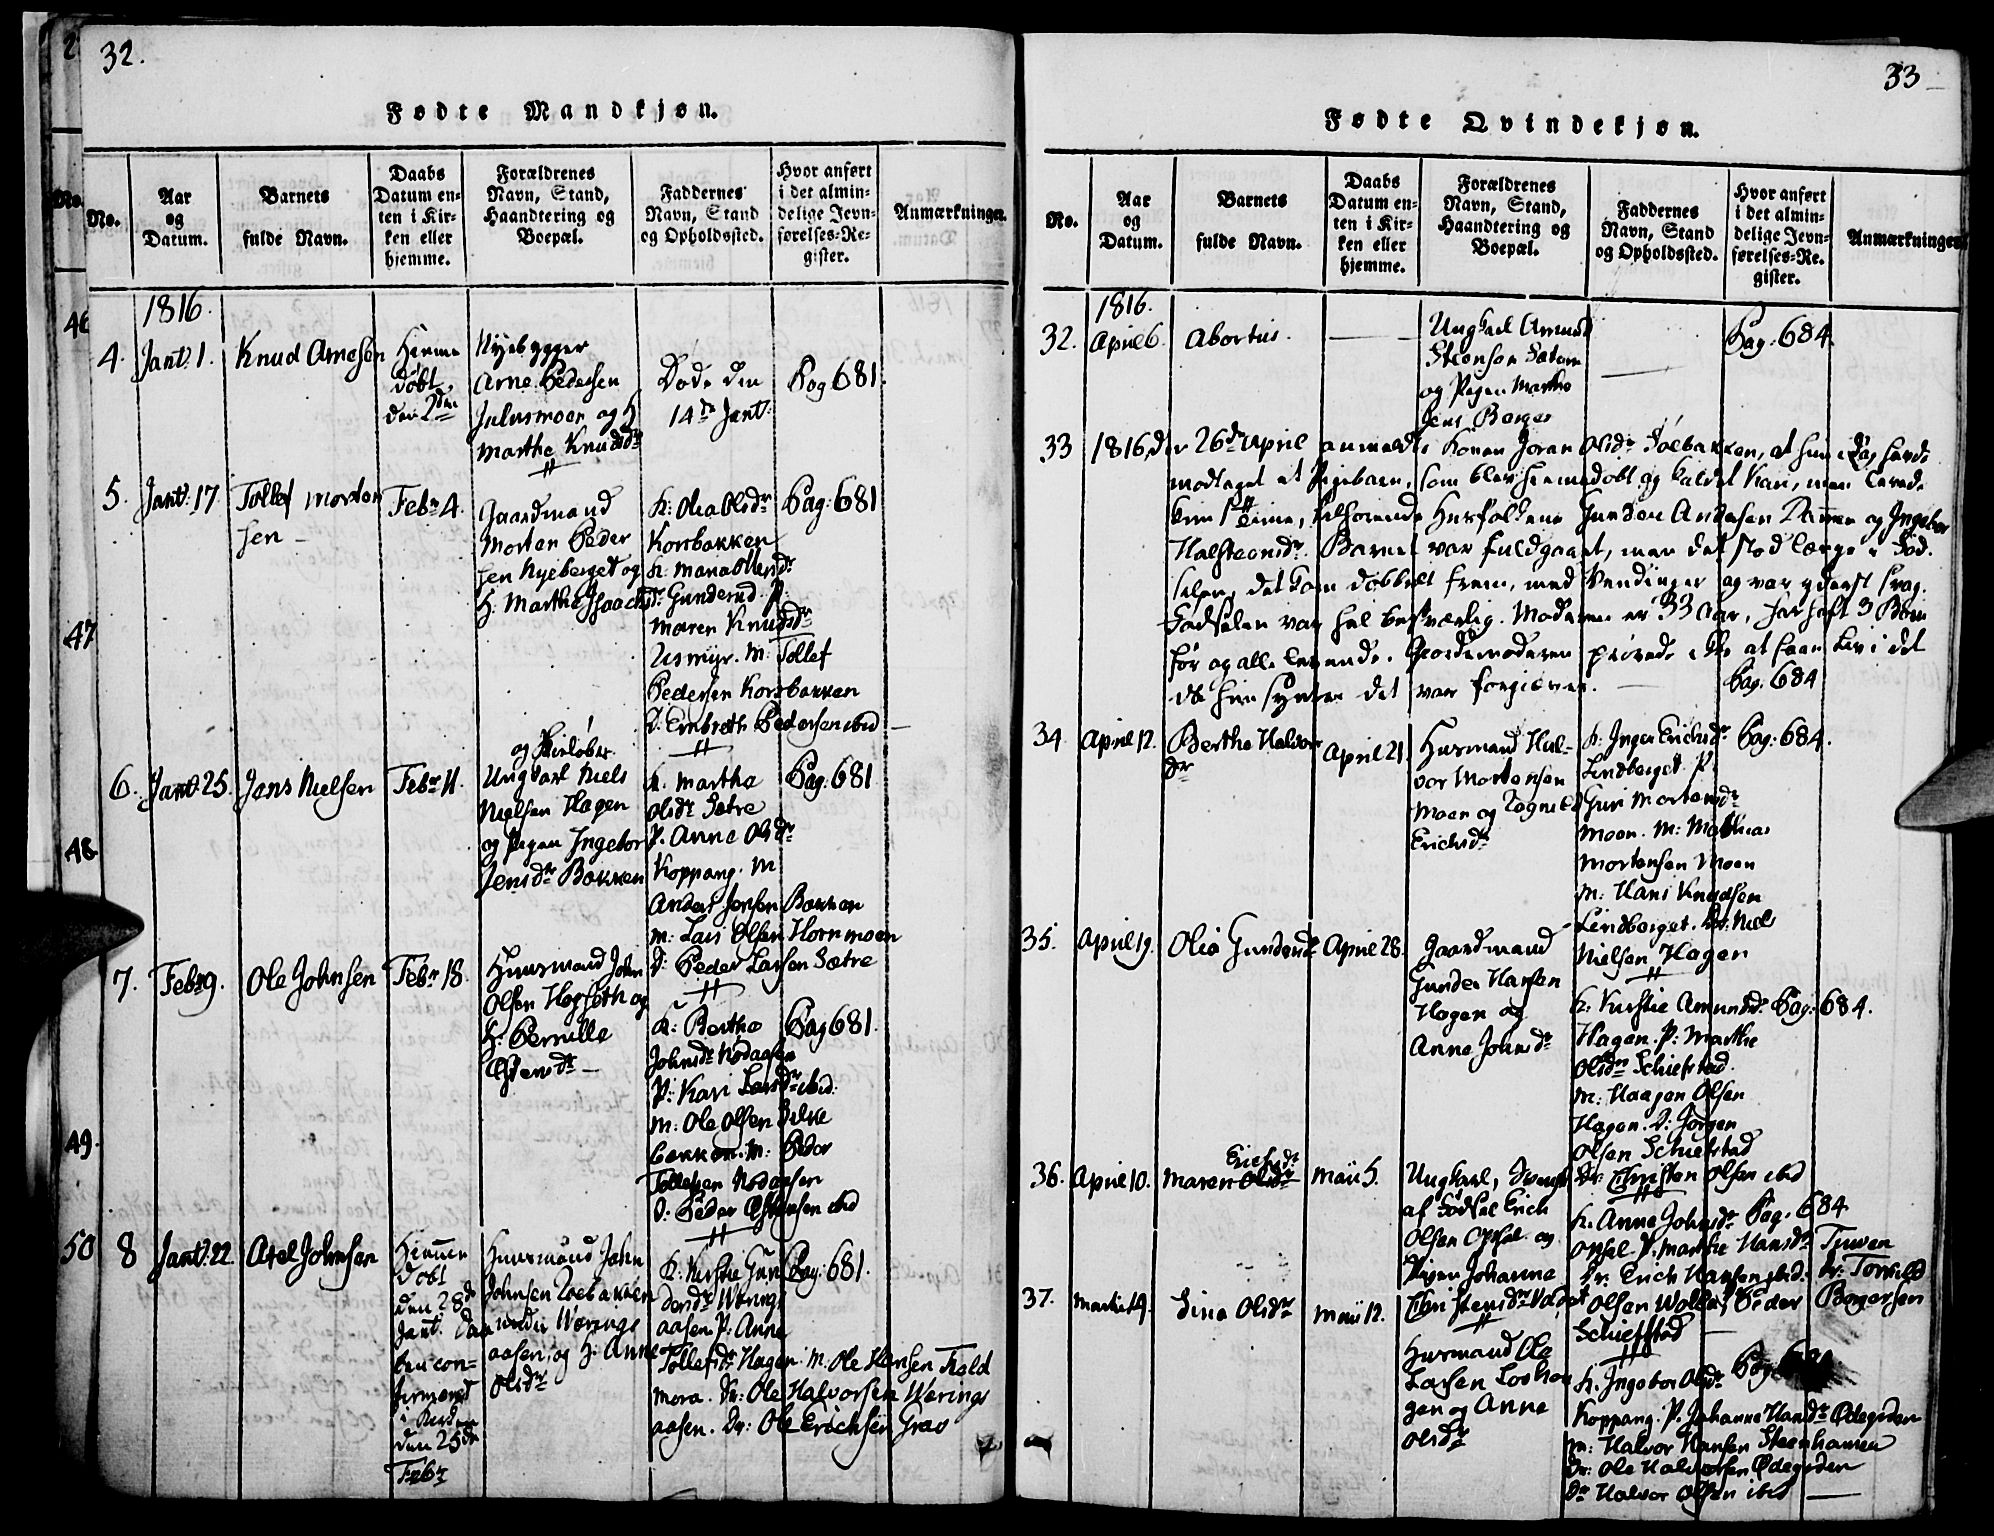 32.
Fødte Mandkjøn.
No.
Aar og Datum.
Barnets fulde Navn.
Daabs Datum enten i Kirken eller hjemme.
Forældrenes Navn, Stand, Haandtering og Boepæl.
Faddernes Navn, Stand og Opholdssted.
Hvor anført i det almindelige Jevnførelses-Register.
Anmærkninger.
1816.
4.
Jan. 1.
Knud Arnesen
Hiemme
døbt
den 2den
Nyebygger
Arne Pedersen
Julusmoen og H
Marthe Knudsdr
Døde den
14de Jan:
Pag 681.
5.
Jan: 17.
Tollef Morten
sen
Febr 4.
Gaardmand
Morten Peder
sen Nyeberget og
H. Marthe Isaachsdr
K: Olea Olsdr
Korsbakken
K: Maria Olensdr
Gunderud. P:
Maren Knudsdr
Usmyr. M: Tollef
Pedersen Korsbakken
D: Embreth Pedersen ibid
Pag: 681
6.
Jan: 25.
Jens Nielsen
Febr 11.
og Skieløber
Ungkarl Niels
Nielsen Hagen
og Pigen Ingebor
Jensdr Bakken
K. Marthe
Olsdr Sætre
P. Anne Olsdr
Koppang. M
Anders Jensen Bakken
M: Lars Olsen Hornmoen
D: Peder Larsen Sætre
Pag: 681
7.
Febr 9.
Ole Johnsen
Febr 18.
Huusmand John
Olsen Hogseth og
H. Pernille
K: Berthe
Johnsdr Nødaasen
P: Kari Larsdr ibid.
M: Ole Olsen
bakken. M: Peder
Tollefsen Nødaasen
D: Peder Østensen ibid
Pag 681.
50
8
Jan: 22.
Axel Johnsen
Hiemme
døbt
den 28de
Jan: Daa
ben con-
firmeret
i Kirken
den 25de
Febr
Huusmand John
Johnsen
under Wærings
aasen, og H. Anne
Olsdr
K: Kirstie Gun
dersdr Wærings
aasen. P: Anne
Tollefsdr Hagen. M: Ole Hansen Kold
moen. Dr: Ole Halvorsen Wærings
aasen. Dr: Ole Erichsen Grav
Pag: 681.
46
47
48
49.
33
Fødte Qvindekjøn.
No.
Aar og Datum.
Barnets fulde Navn.
Daabs Datum enten i Kirken eller hjemme.
Forældrenes Navn, Stand, Haandtering og Boepæl.
Faddernes Navn, Stand og Opholdssted.
Hvor anført i det almindelige Jevnførelses-Register.
Anmærkninger
1816.
32.
April 6.
Abortus.
Ungkarl Amund
Steenson Sætre
og Pigen Marthe
Jens Berger
Pag: 684.
33
1816, den 26de April anmeldte Konen Joran Olsdr Sølbakken, at hun i Dag havde
modtaget et Pigebarn, som blev hiemmedøbt og kaldet Kari, men levede
kun 1 Time, tilhørende Husfolkene Gunder Andersen og Ingebor
Halsteensdr. Barnet var fuldgaaet, men det stod længe i Fød
selen, det kom dobbelt frem, med Vendinger og var yderst svag.
Fødselen var hel besværlig. Moderen er 33 Aar, har haft 3 Børn
før og alle levende. Giordemoderen prøvede ikke at faae Liv i det
da hun syntes det var forgieves.
Pag. 684
34.
April 12.
Berthe Halvor
dr
April 21.
Husmand Hal-
vor Mortensen
Moen og Ragnild
Erichsdr
K: Inger Erichsdr
Lindberget. P:
Guri Mortensdr
Moen. M: Mathias
Mortensen Moen
M: Hans Knudsen
Lindberget. Dr: Niels
Nielsen Hagen
Pag: 684.
35.
April 19.
Olia Gundersdr
April 28.
Gaardmand
Gunder Hansen
Hagen og
Anne Johnsdr
K: Kirstie Amundsdr
Hagen. P: Marthe
Olsdr Schiefstad.
M: Haagen Olsen
Hagen. D: Jørgen
Olsen Schiefstad
Dr: Christen Olsen ibid
Pag: 684.
36.
April 10.
Erichsdr
Maren Olsdr
Maii 5.
Ungkarl,
af Fødsel Erich
Olsen Opsal og
Pigen Johanne
Christensdr
K. Anne Johnsdr
Opsal. P. Marthe Hansdr
Dr: Erich Hansen ibid.
Olsen Wollet, Peder
Schiefstad
Pag. 684
37.
Martii 19.
Sina Olsdr
Maii 12.
Husmand Ole
Larsen Loshau
gen og Anne
Olsdr
K. Ingebor Olsdr
Koppang. P. Johanne Hansdr Ødegarden
M: Halvor Hansen Steenhamen
Dr: Ole Halvorsen Ødegarden
Dr Halvor Olsen ibid